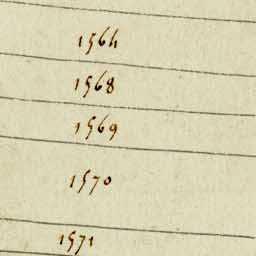 1564
1568
1569
1570
1571